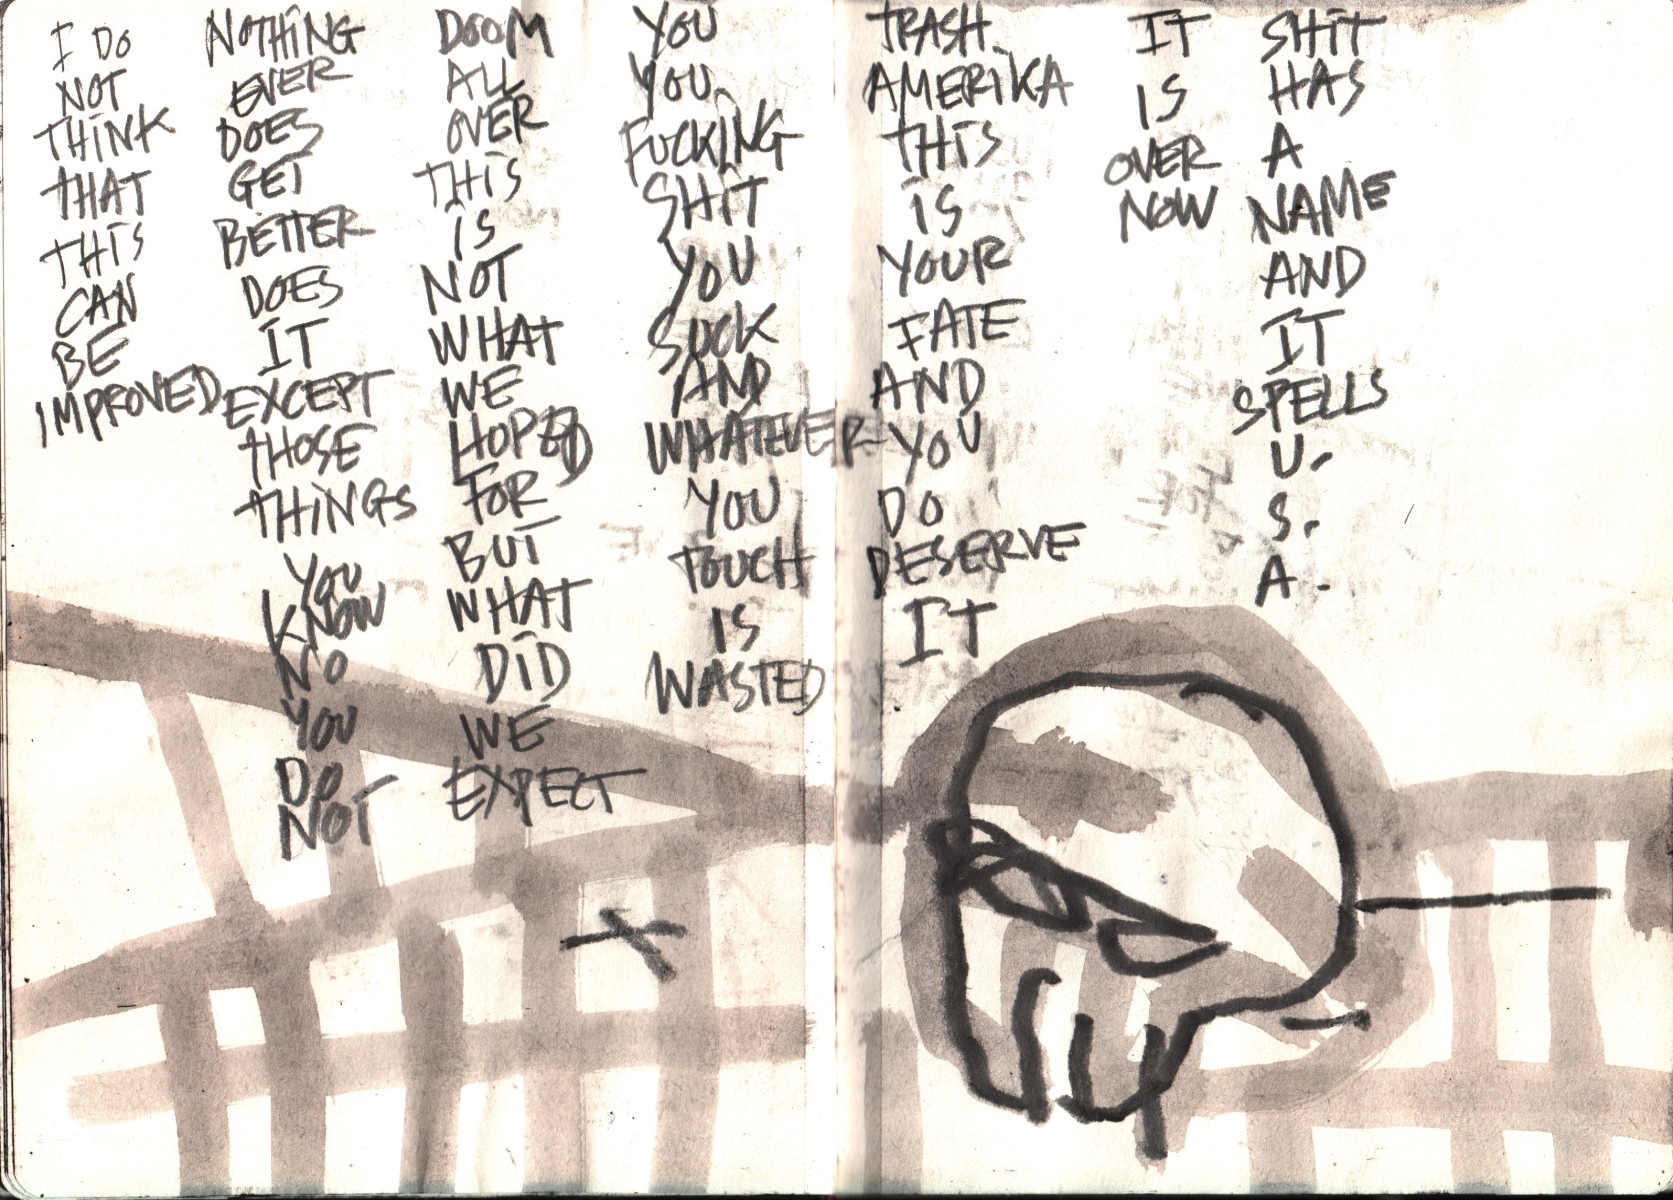 I DO
NOT
THINK
THAT
THIS
CAN
BE
IMPROVED
NOTHING
EVER
DOES
GET
BETTER
DOES
IT
EXCEPT
THOSE
THINGS
YOU
KNOW
NO
YOU
DO
NOT
DOOM
ALL
OVER
THIS
IS
NOT
WHAT
WE
HOPED
FOR
BUT
WHAT
DID
WE
EXPECT
YOU
YOU
FUCKING
SHIT
YOU
SUCK
AND
WHATEVER
YOU
TOUCH
IS
WASTED
TRASH
AMERIKA
THIS
IS
YOUR
FATE
AND
YOU
DO
DESERVE
IT
IT
IS
OVER
NOW
SHIT
HAS
A
NAME
AND
IT
SPELLS
U.
S.
A.